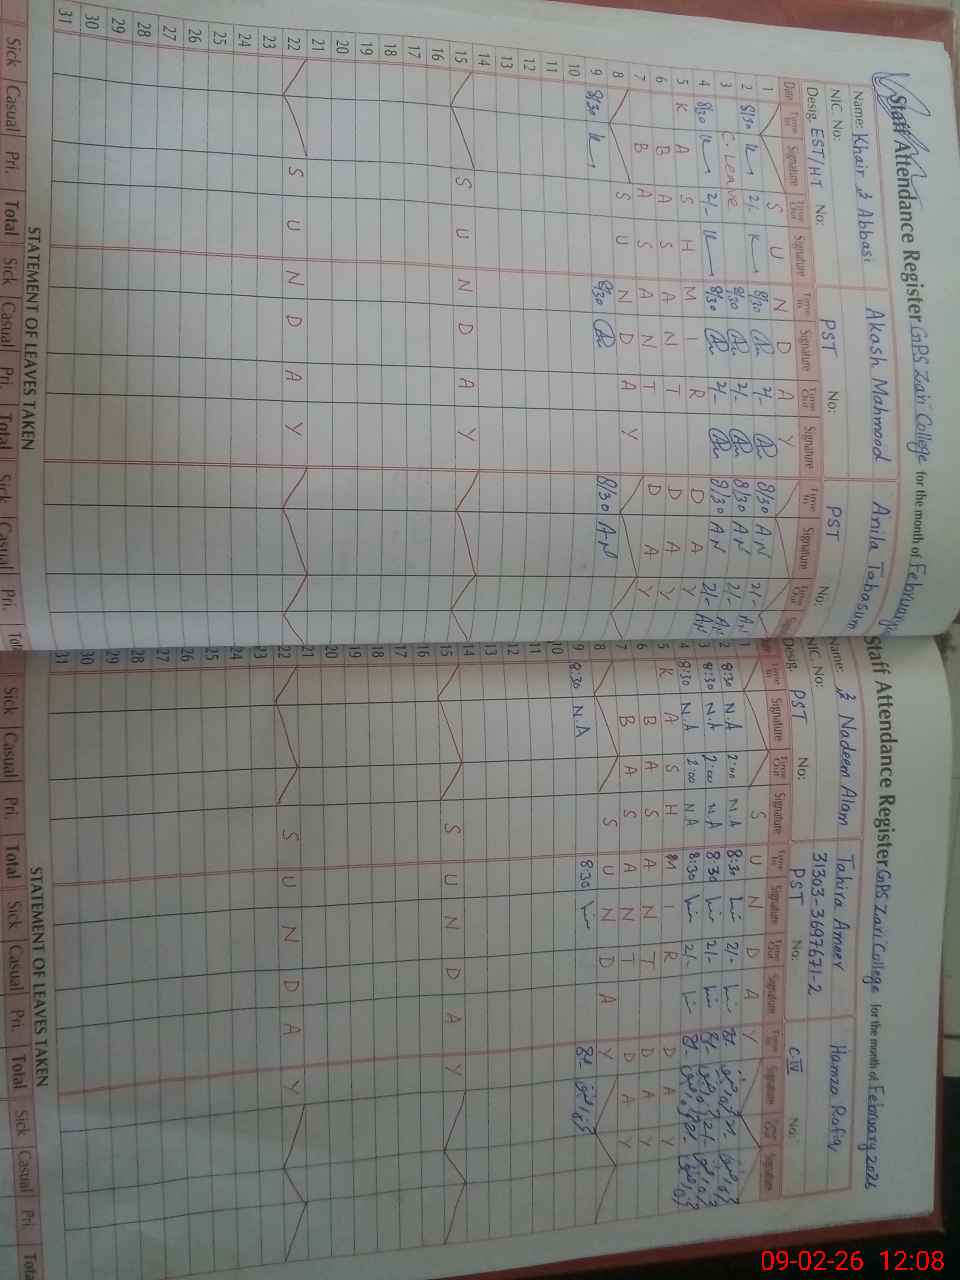 Staff Attendance Register GPS Zari College for the month of February
Name: Khair Abbasi Akash Mahmood Anila Tabasum
NIC No:
Desig. EST/HT No: PST No: PST No:
Date Time In Signature Time Out Signature Time In Signature Time Out Signature Time In Signature Time Out
1 S U N D A Y
2 8/30 2/- 8/30 2/- 8/30 AN 2/- AN
3 C. Leave 8/30 2/- 8/30 AN 2/- AN
4 8/30 2/- 8/30 2/- 8/30 AN 2/- AN
5 K A S H M I R D A Y
6 B A S A N T D A Y
7 B A S A N T D A Y
8 S U N D A Y
9 8/30 8/30 8/30 A-N
10
11
12
13
14
15 S U N D A Y
16
17
18
19
20
21
22 S U N D A Y
23
24
25
26
27
28
29
30
31
STATEMENT OF LEAVES TAKEN
Sick Casual Pri. Total Sick Casual Pri. Total Sick Casual Pri.
Staff Attendance Register GPS Zari College for the month of February 2026
Name: Nadeem Alam Tahira Ameer Hamza Rafiq
NIC No: 31303-3697671-2
Desig. PST No: PST No: C IV No:
Time In Signature Time Out Signature Time In Signature Time Out Signature Time In Signature Time Out Signature
1 S U N D A Y
2 8:30 N.A 2:00 N.A 8:30 2/-
3 8:30 N.A 2:00 N.A 8:30 2/-
4 8:30 N.A 2:00 N.A 8:30 2/-
5 K A S H M I R D A Y
6 B A S A N T D A Y
7 B A S A N T D A Y
8 S U N D A Y
9 8:30 N.A 8:30
10
11
12
13
14
15 S U N D A Y
16
17
18
19
20
21
22 S U N D A Y
23
24
25
26
27
28
29
30
31
STATEMENT OF LEAVES TAKEN
Sick Casual Pri. Total Sick Casual Pri. Total Sick Casual Pri. Total
09-02-26 12:08